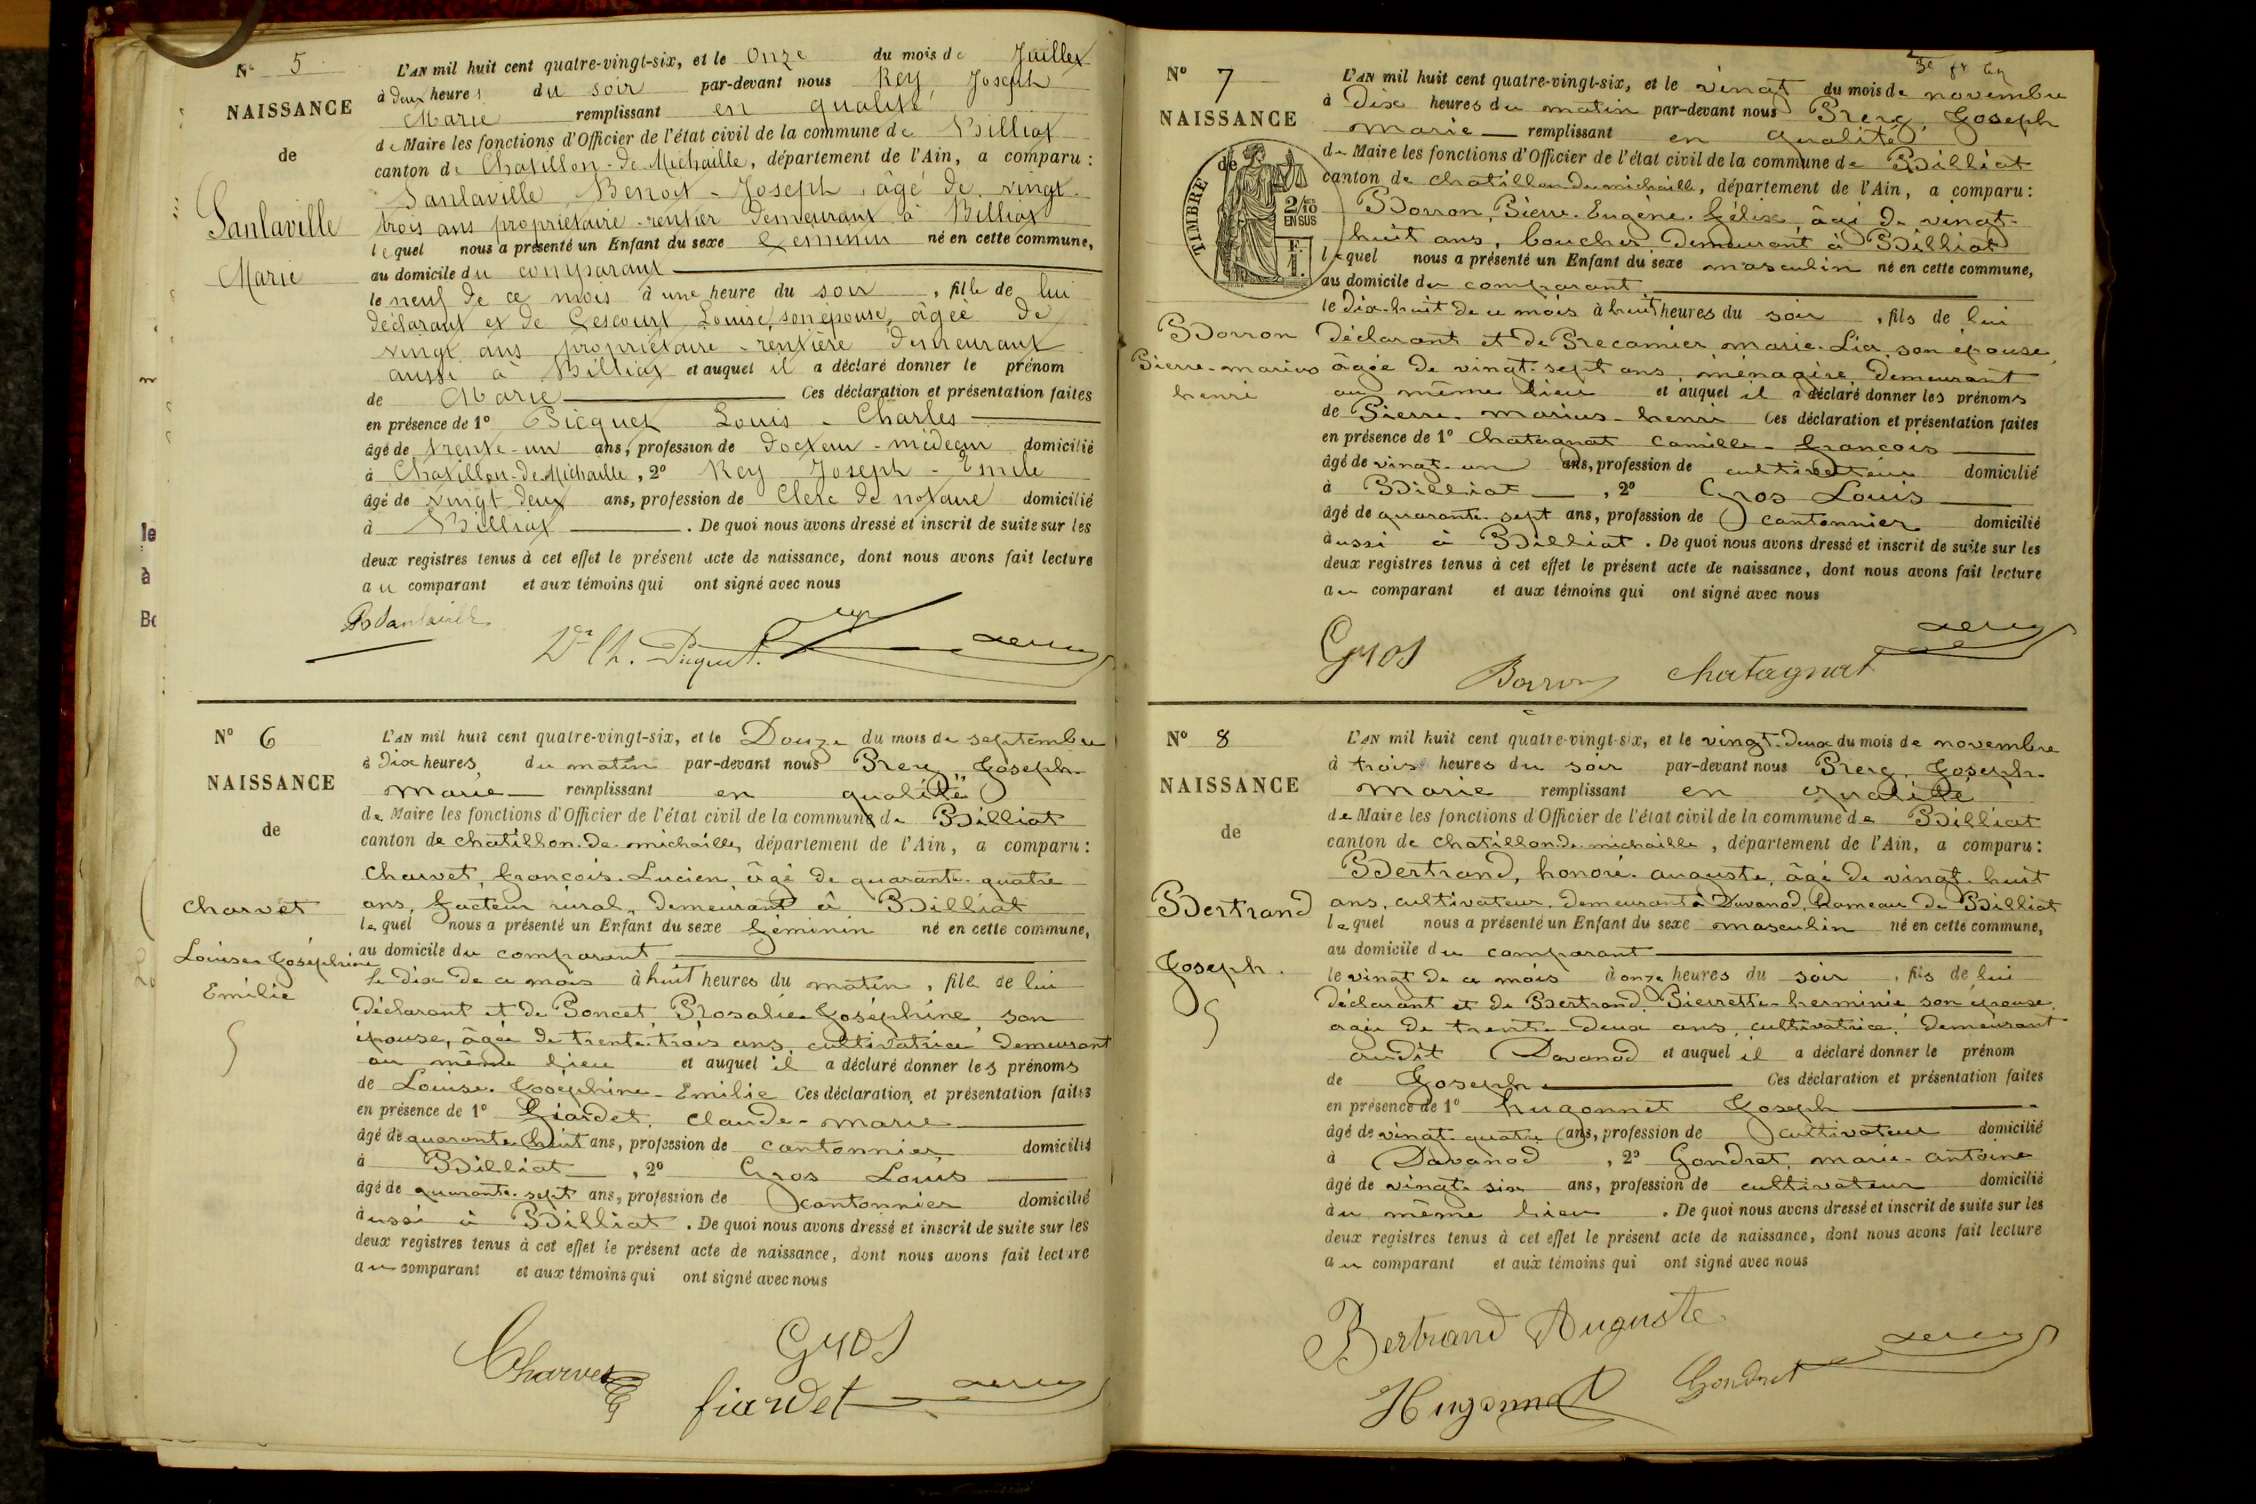 N° 5
NAISSANCE
de
Sanlaville
Marie
L'AN mil huit cent quatre-vingt-six, et le Onze du mois de Juillet
à deux heures du soir par-devant nous Rey, Joseph
Marie remplissant en qualité
de Maire les fonctions d'Officier de l'état civil de la commune de Billiat
canton de Chatillon-de-Michaille, département de l'Ain, a comparu :
Sanlaville Benoit-Joseph, âgé de vingt
trois ans propriétaire-rentier demeurant à Billiat
lequel nous a présenté un Enfant du sexe féminin né en cette commune,
au domicile du comparant
le neuf de ce mois à une heure du soir, fille de lui
déclarant et de Lescourt Louise, son épouse, âgée de
vingt ans propriétaire-rentière demeurant
aussi à Billiat et auquel il a déclaré donner le prénom
de Marie Ces déclaration et présentation faites
en présence de 1° Picquet Louis-Charles
âgé de trente-un ans, profession de docteur-médecin domicilié
à Chatillon-de-Michaille, 2° Rey Joseph-Emile
âgé de vingt deux ans, profession de Clerc de notaire domicilié
à Billiat. De quoi nous avons dressé et inscrit de suite sur les
deux registres tenus à cet effet le présent acte de naissance, dont nous avons fait lecture
au comparant et aux témoins qui ont signé avec nous
B Sanlaville
Dr Ch. Picquet.
N° 6
NAISSANCE
de
Charvet
Louise Joséphine
Emilie
L'AN mil huit cent quatre-vingt-six, et le Douze du mois de septembre
à dix heures du matin par-devant nous Rey Joseph
Marie remplissant en qualité
de Maire les fonctions d'Officier de l'état civil de la commune de Billiat
canton de chatillon-de-michaille, département de l'Ain, a comparu :
Charvet, françois-Lucien, âgé de quarante-quatre
ans, facteur rural, demeurant à Billiat
lequel nous a présenté un Enfant du sexe féminin né en cette commune,
au domicile du comparant
le dix de ce mois à huit heures du matin, fille de lui
déclarant et de Poncet Rosalie Joséphine son
épouse, âgée de trente-trois ans, cultivatrice demeurant
au même lieu et auquel il a déclaré donner les prénoms
de Louise-Joséphine-Emilie Ces déclaration et présentation faites
en présence de 1° fiardet, claude-marie
âgé de quarante huit ans, profession de cantonnier domicilié
à Billiat, 2° Gros Louis
âgé de quarante-sept ans, profession de cantonnier domicilié
aussi à Billiat. De quoi nous avons dressé et inscrit de suite sur les
deux registres tenus à cet effet le présent acte de naissance, dont nous avons fait lecture
au comparant et aux témoins qui ont signé avec nous
Charvet
Gros
fiardet
N° 7
NAISSANCE
de
TIMBRE
2/10
EN SUS
Borron
Pierre-marius
henri
L'AN mil huit cent quatre-vingt-six, et le vingt du mois de novembre
à dix heures du matin par-devant nous Rey, Joseph
marie remplissant en qualité
de Maire les fonctions d'Officier de l'état civil de la commune de Billiat
canton de chatillon de michaille, département de l'Ain, a comparu :
Borron, Pierre-Eugène-félix, âgé de vingt-
huit ans, boucher demeurant à Billiat
lequel nous a présenté un Enfant du sexe masculin né en cette commune,
au domicile du comparant
le dix-huit de ce mois à huit heures du soir, fils de lui
déclarant et de Recamier marie-Lia, son épouse
âgée de vingt-sept ans, ménagère, demeurant
au même lieu et auquel il a déclaré donner les prénoms
de Pierre-marius-henri Ces déclaration et présentation faites
en présence de 1° Chatagnat Camille-françois
âgé de vingt-un ans, profession de cultivateur domicilié
à Billiat, 2° Gros Louis
âgé de quarante-sept ans, profession de cantonnier domicilié
aussi à Billiat. De quoi nous avons dressé et inscrit de suite sur les
deux registres tenus à cet effet le présent acte de naissance, dont nous avons fait lecture
au comparant et aux témoins qui ont signé avec nous
Gros
Borron
chatagnat
N° 8
NAISSANCE
de
Bertrand
Joseph.
L'AN mil huit cent quatre-vingt-six, et le vingt-deux du mois de novembre
à trois heures du soir par-devant nous Rey, Joseph
marie remplissant en qualité
de Maire les fonctions d'Officier de l'état civil de la commune de Billiat
canton de chatillon-de-michaille, département de l'Ain, a comparu :
Bertrand, honoré-auguste, âgé de vingt-huit
ans, cultivateur, demeurant à Davanod, hameau de Billiat
lequel nous a présenté un Enfant du sexe masculin né en cette commune,
au domicile du comparant
le vingt de ce mois à onze heures du soir, fils de lui
déclarant et de Bertrand, Pierrette-herminie son épouse
agée de trente-deux ans, cultivatrice, demeurant
audit Davanod et auquel il a déclaré donner le prénom
de Joseph Ces déclaration et présentation faites
en présence de 1° hugonnet Joseph
âgé de vingt-quatre ans, profession de cultivateur domicilié
à Davanod, 2° Gondret, marie-antoine
âgé de vingt-six ans, profession de cultivateur domicilié
au même lieu. De quoi nous avons dressé et inscrit de suite sur les
deux registres tenus à cet effet le présent acte de naissance, dont nous avons fait lecture
au comparant et aux témoins qui ont signé avec nous
Bertrand Auguste
Hugonnet
Gondret